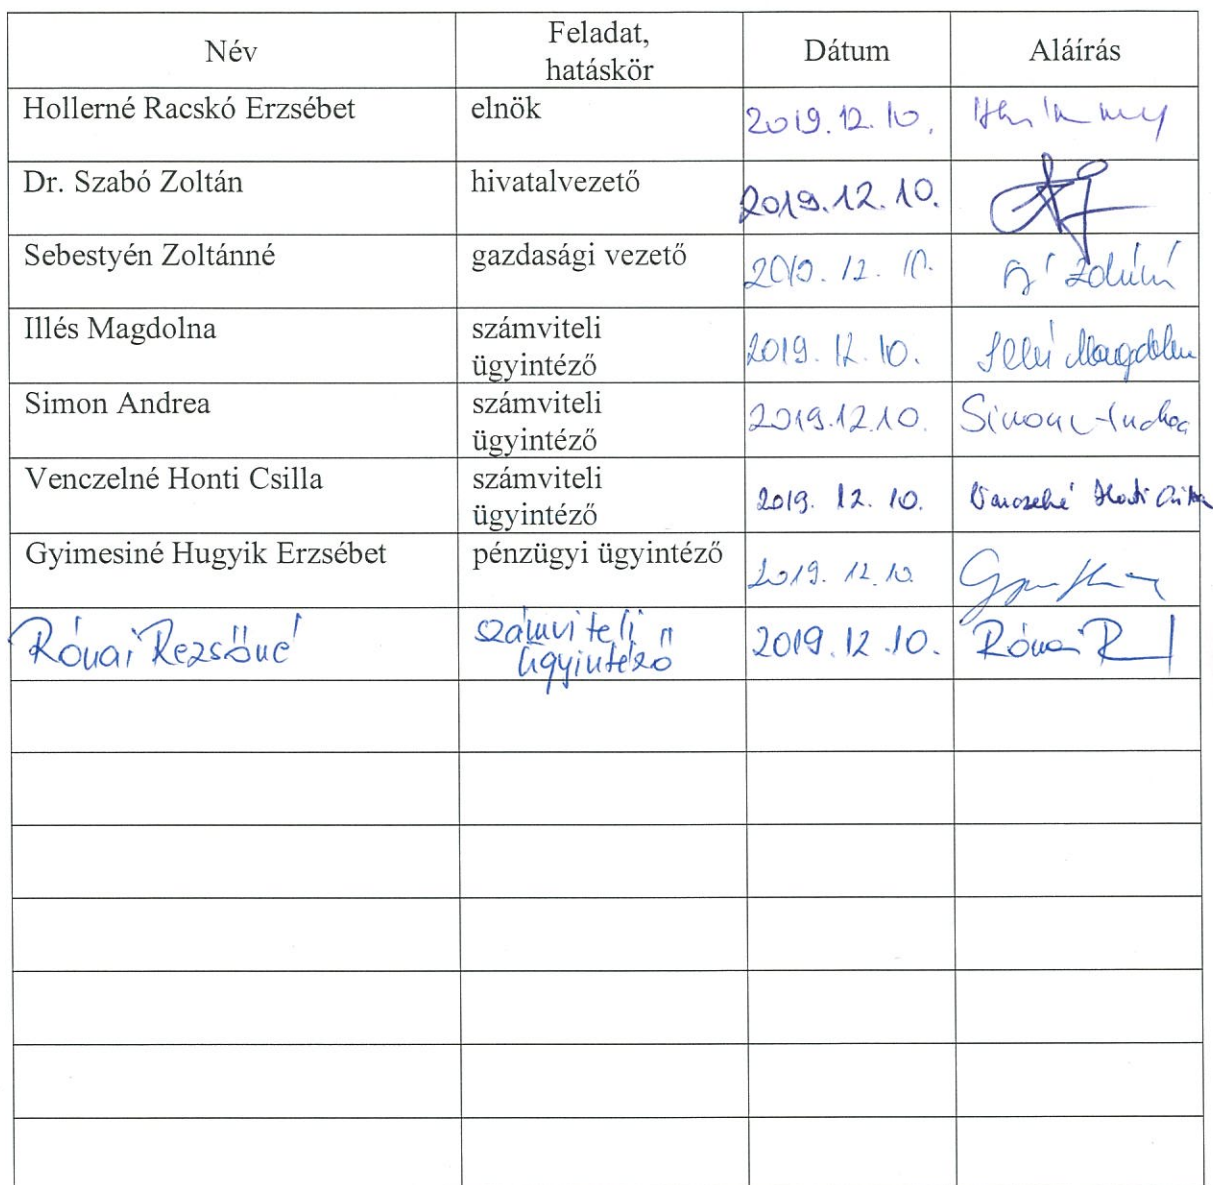 Név
Feladat,
hatáskör
Dátum
Aláírás
Hollerné Racskó Erzsébet
elnök
2019.12.10.
Dr. Szabó Zoltán
hivatalvezető
2019.12.10.
Sebestyén Zoltánné
gazdasági vezető
2019.12.10.
Illés Magdolna
számviteli
ügyintéző
2019.12.10.
Illés Magdolna
Simon Andrea
számviteli
ügyintéző
2019.12.10.
Simon Andrea
Venczelné Honti Csilla
számviteli
ügyintéző
2019.12.10.
Venczelné Honti Csilla
Gyimesiné Hugyik Erzsébet
pénzügyi ügyintéző
2019.12.10.
Rónai Rezsőné
számviteli
ügyintéző
2019.12.10.
Rónai R